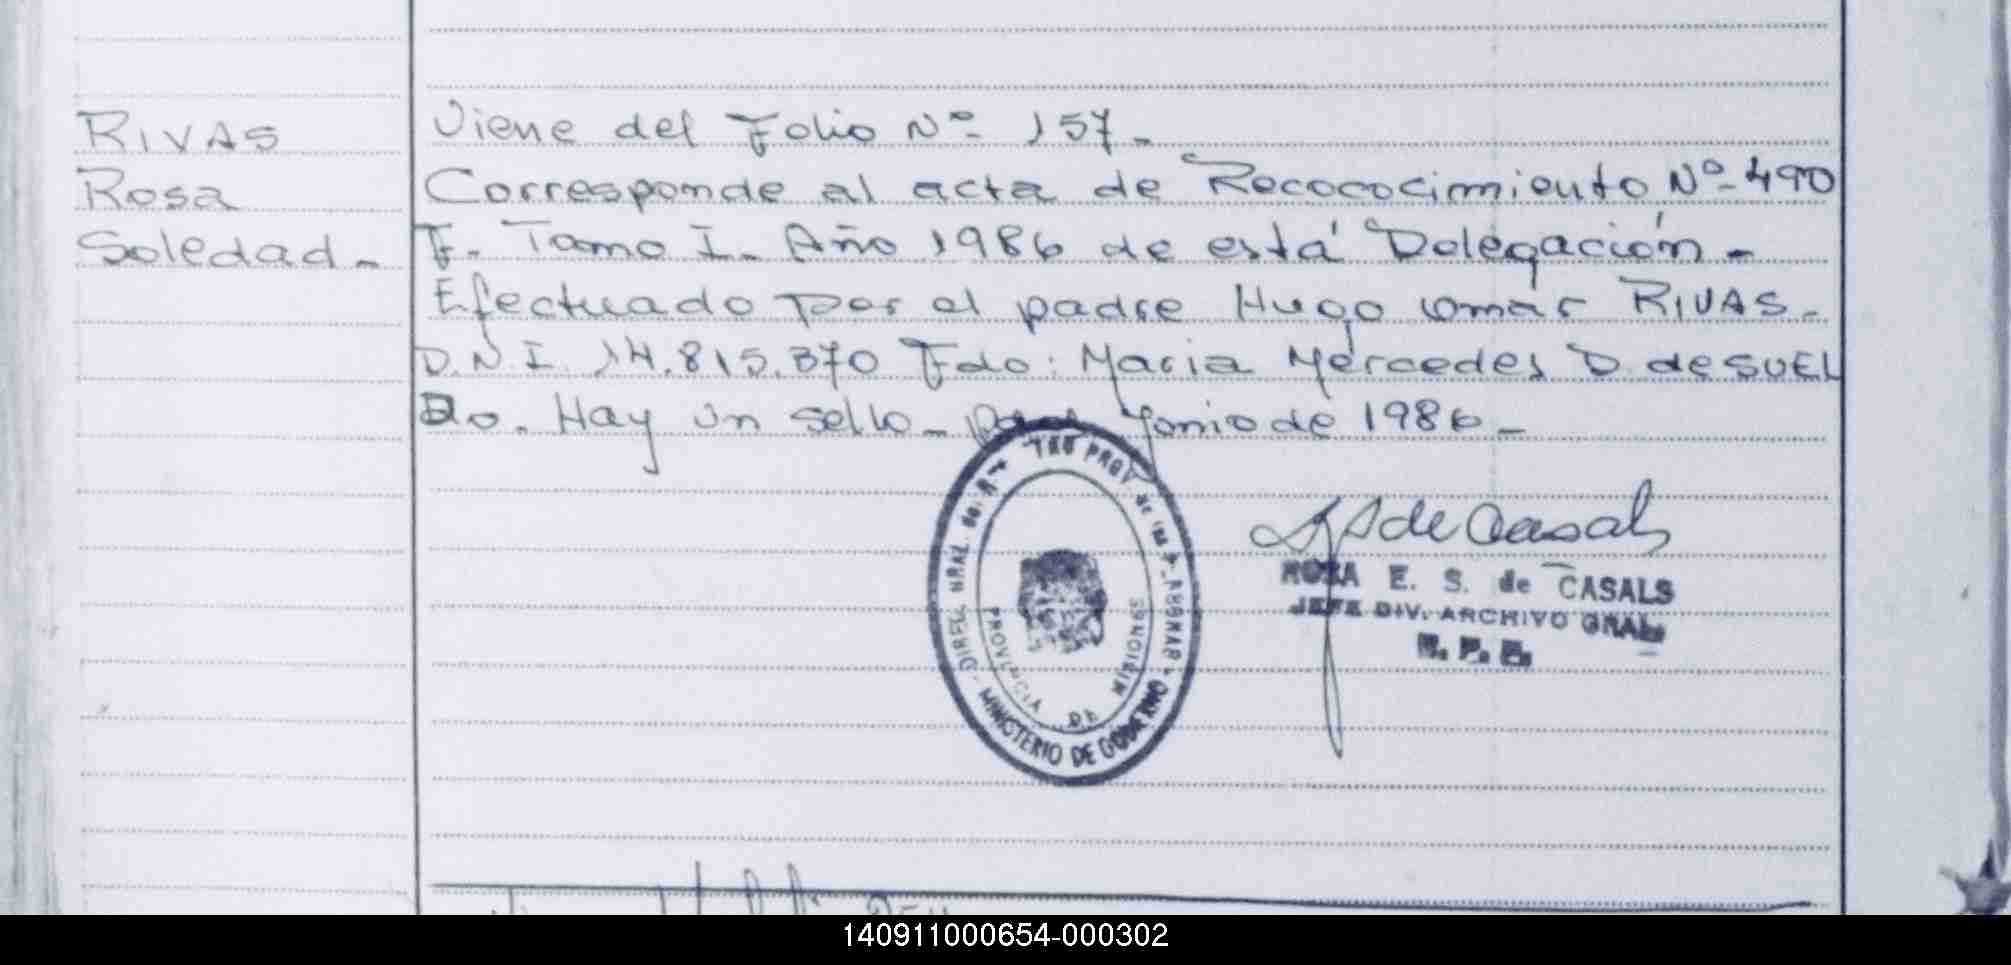 RIVAS
Rosa
Soledad -
Viene del Folio Nº 157 -
Corresponde al acta de Rococociimiento Nº 490
F. Tomo I - Año 1986 de está Delegación -
Efectuado por el padre Hugo Omar RIVAS -
D.N.I. 14.815.370 Fdo: Maria Mercedes D. de SUEL
Do. Hay un sello - Junio de 1986 -
DE PROV de las P
MINISTERIO DE GOBIERNO
PROVINCIA DE MISIONES
de Casals
ROSA E. S. de CASALS
JEFE DIV. ARCHIVO GRAL
R. P. P.
140911000654-000302